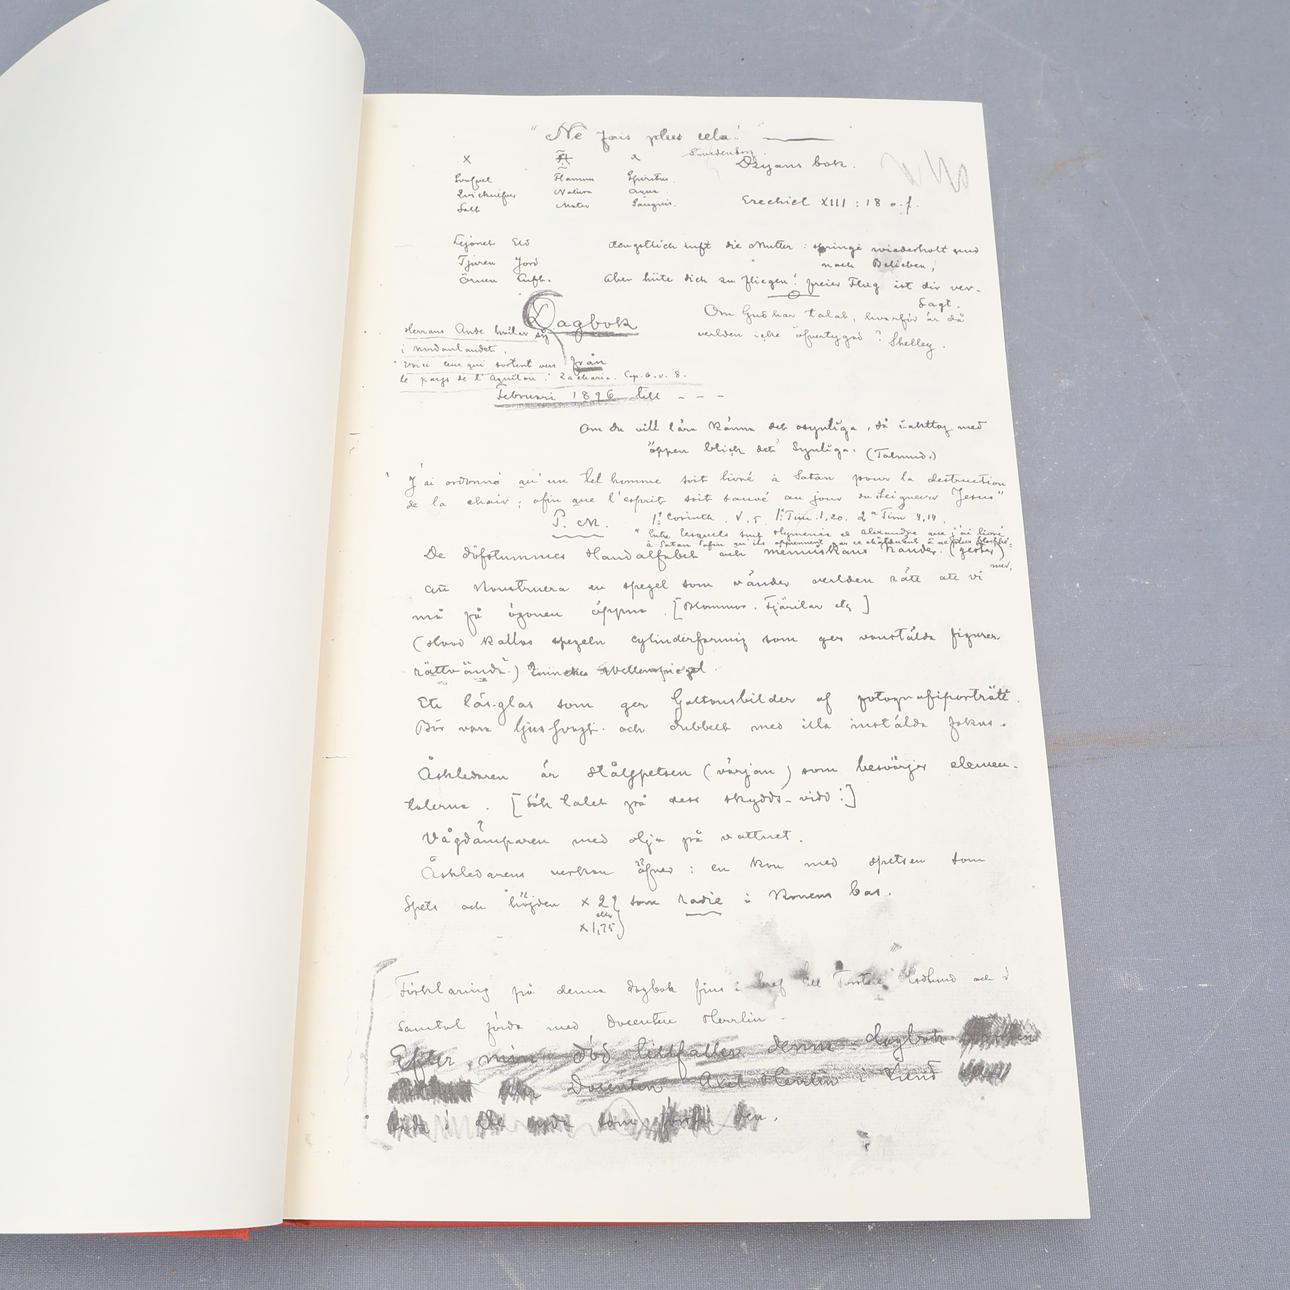 "Ne fais plus cela!"
x Ħ x Swedenborg Dzyans bok.
Svafvel Flamma Spiritus
Qvicksilfver Natura Aqua
Salt Mater Sanguis. Ezechiel XIII : 18 o.f.
Lejonet Eld Aengstlich ruft die Mutter : springe wiederholt und
Tjuren Jord nach Belieben,
Örnen Luft. Aber hüte dich zu fliegen! freier Flug ist dir ver-
sagt.
Dagbok
Om Gud har talat, hvarför är då
verlden icke öfvertygad ? Shelley.
Herrans Ande hvilar sig
i nordanlandet.
från
Voici ceux qui sortent vers
le pays de l'Aquilon. Zacharia. Cap. 6. v. 8.
Februari 1896 till - - -
Om Du vill lära känna det osynliga, så iakttag med
öppen blick det Synliga. (Talmud.)
"J'ai ordonné qu'un tel homme soit livré à Satan pour la destruction
de la chair; afin que l'esprit soit sauvé au jour du Seigneur Jesus"
P. M. 1a Corinth. V, 5. 1a Tim. 1, 20. 2a Tim 4, 14.
"Entre lesquels sont Hymenée et Alexandre que j'ai livré
à Satan afin qu'ils apprennent par ce châtiment à ne plus
De döfstummas Handalfabet och menniskans händer. (gester)
Att konstruera en spegel som vänder verlden rätt att vi
må få ögonen öppna. [Blommor. Fjärilar etc ]
(Hvad kallas spegeln cylinderformig som ger vanställda figurer
rättvända?)
Ett läs-glas som ger Galtonsbilder af fotografiporträtt.
Bör vara ljussvagt och dubbelt med illa inställda fokus.
Åskledaren är Stålspetsen (värjan) som besvärjer elemen-
talerna. [Sök talet på dess skydds-vidd!]
Vågdämparen med olja på vattnet.
Åskledarens verkan öfver: en kon med spetsen som
Spets och höjden x 2? som radie i konens bas.
eller
x 1,75
Förklaring på denna dagbok fins i bref till Torsten Hedlund och i
Samtal förda med Docenten Herrlin.
Efter min död tillfaller denna dagbok
eller Docenten Axel Herrlin i Lund
i det som den.